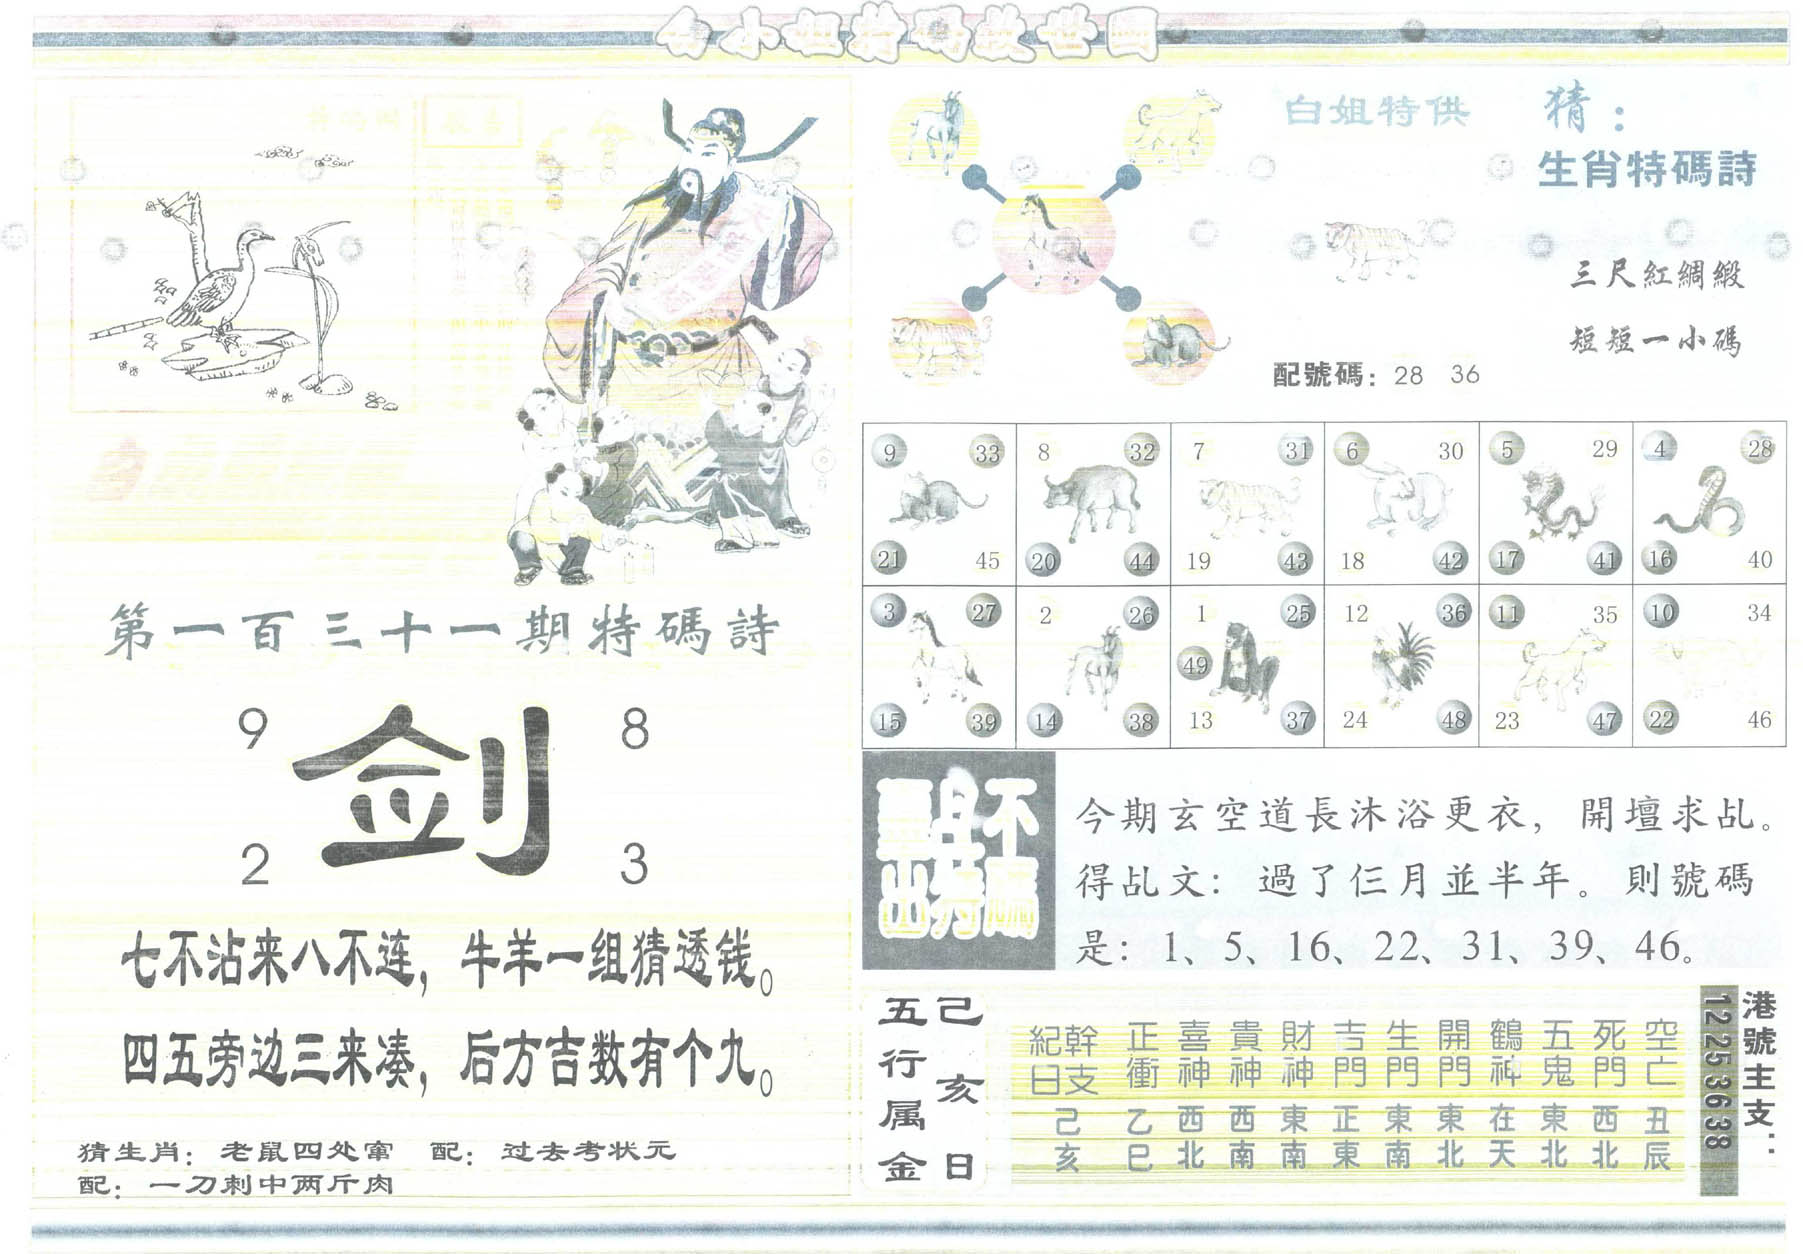 白小姐特码救世图
第一百三十一期特碼詩
9 8
剑
2 3
七不沾来八不连，牛羊一组猜透钱。
四五旁边三来凑，后方吉数有个九。
猜生肖：老鼠四处窜 配：过去考状元
配：一刀刺中两斤肉
白姐特供
猜：
生肖特碼詩
三尺紅綢緞
短短一小碼
配號碼：28 36
9 33 8 32 7 31 6 30 5 29 4 28
21 45 20 44 19 43 18 42 17 41 16 40
3 27 2 26 1 25 12 36 11 35 10 34
49
15 39 14 38 13 37 24 48 23 47 22 46
不碼
單出
今期玄空道長沐浴更衣，開壇求乩。
得乩文：過了仨月並半年。則號碼
是：1、5、16、22、31、39、46。
五行属金
己亥日
紀日 幹支 正衝 喜神 貴神 財神 吉門 生門 開門 鶴神 五鬼 死門 空亡
己亥 乙巳 西北 西南 東南 正東 東南 東北 在天 東北 西北 丑辰
港號主支：
12 25 36 38